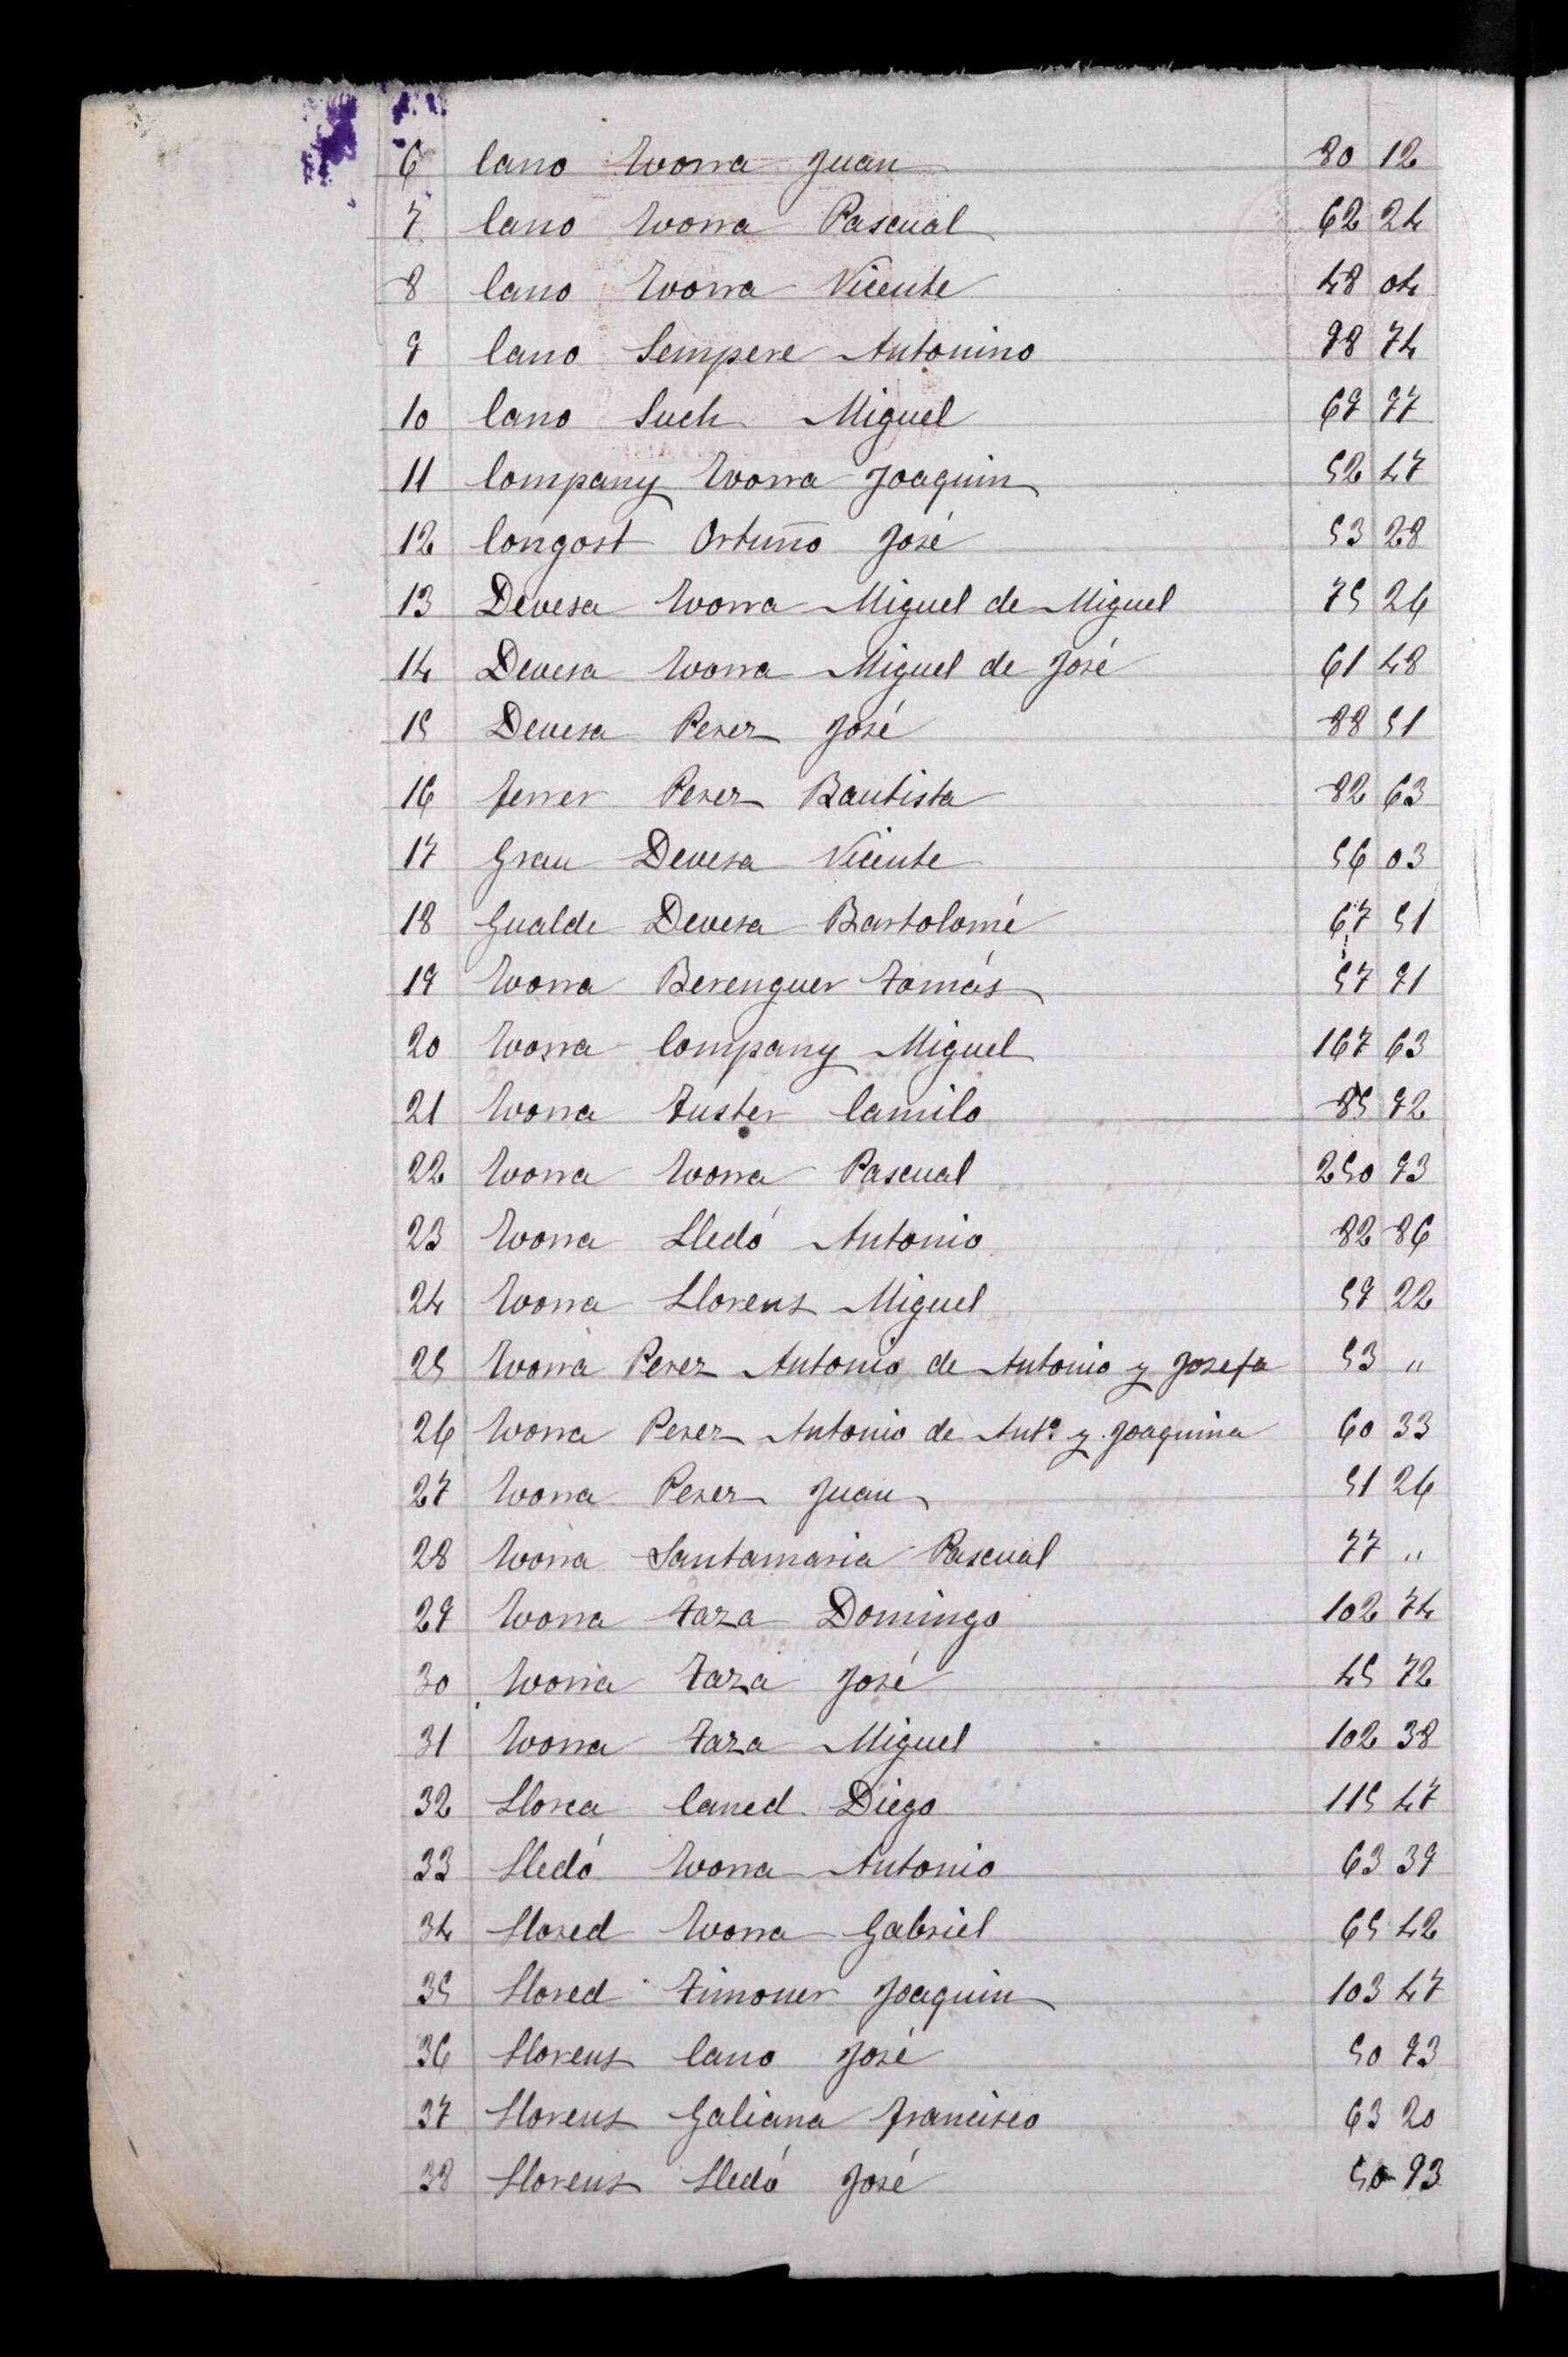 6 Cano Ivorra Juan 80 12
7 Cano Ivorra Pascual 62 24
8 Cano Ivorra Vicente 48 04
9 Cano Sempere Antonino 98 74
10 Cano Such Miguel 69 97
11 Company Ivorra Joaquin 52 47
12 Congost Ortuño José 53 28
13 Devesa Ivorra Miguel de Miguel 75 26
14 Devesa Ivorra Miguel de José 61 48
15 Devesa Perez José 88 51
16 Ferrer Perez Bautista 82 63
17 Grau Devesa Vicente 56 03
18 Gualde Devesa Bartolomé 67 51
19 Ivorra Berenguer Tomás 57 91
20 Ivorra Company Miguel 167 63
21 Ivorra Fuster Camilo 85 92
22 Ivorra Ivorra Pascual 250 93
23 Ivorra Lledó Antonio 82 86
24 Ivorra Llorens Miguel 59 22
25 Ivorra Perez Antonio de Antonio y Josefa 53 "
26 Ivorra Perez Antonio de Antº y Joaquina 60 33
27 Ivorra Perez Juan 51 26
28 Ivorra Santamaria Pascual 77 "
29 Ivorra Zaza Domingo 102 74
30 Ivorra Zaza José 45 72
31 Ivorra Zaza Miguel 102 38
32 Llorca Caned Diego 115 47
33 Lledó Ivorra Antonio 63 39
34 Llored Ivorra Gabriel 65 42
35 Llored Timoner Joaquin 103 47
36 Llorens Cano José 50 93
37 Llorens Galiana Francisco 63 20
38 Llorens Lledó José 50 93